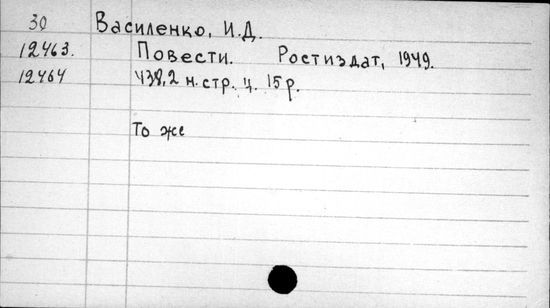 30 Василенко, И.Д.
12463. Повести. Ростиздат, 1949.
12464 438,2 н. стр. ц. 15 р.
То же